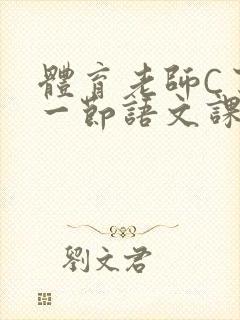 體育老師C
一節語文課
劉文君